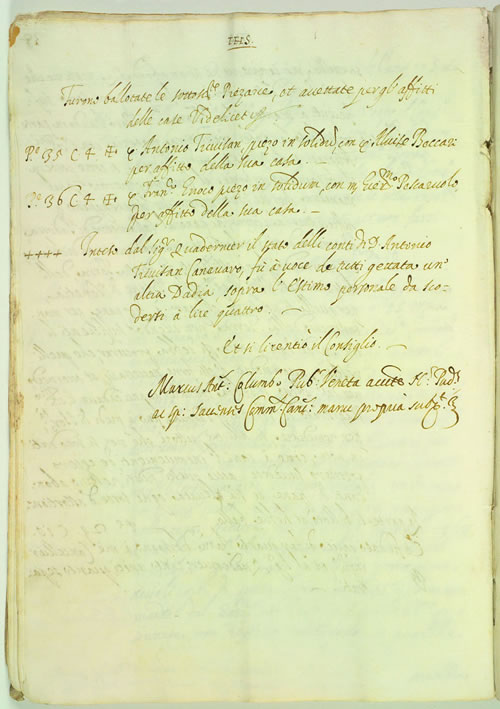 Furono ballotate le sottosc.te Pieggarie, et accettate per gl'affitti
delle case Videlicet
P.o 135 C 4 # Antonio Trivisan piezo in solidu, con Alluise Beccar.
per affitto della sua casa.
P.o 136 C 4 # Fran.o Enoco piezo in solidum, con m. Pescaruolo
per affitto della sua casa. —
++++ Inteso dal Sig.r Quadernier il stato delli conti di D. Antonio
Trivisan Canavaro, fù à voce de tutti gettata un
altra Dadia sopra l'Estimo personale da sco-
dersi à lire quattro. —
Et si licentiò il Consiglio. —
Marcus Ant.s Columbo Pub.s Veneta
ac sp. Comm. Canc.s manu propria subs.t